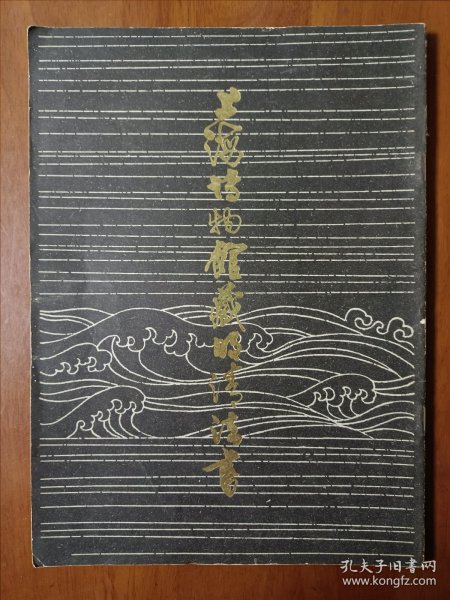 博物館藏明清法書
孔夫子旧书网
www.kongfz.com